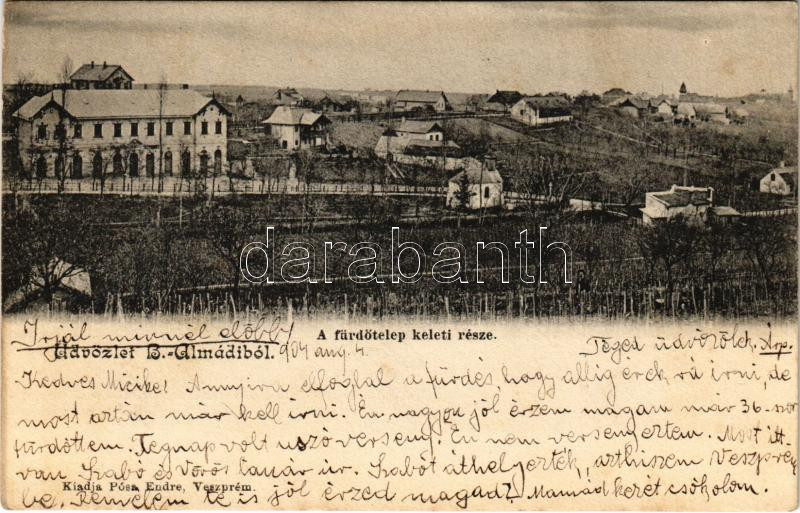 darabanth
A fürdőtelep keleti része.
Irjál minnél előbb!
Üdvözlet B.-Almádiból.
904 aug. 4.
Téged üdvözölek Árp.
Kedves Miczike! Annyira elfoglal a fürdés, hogy allig érek rá irni, de
most aztán már kell irni. Én nagyon jól érzem magam már 36-szor
fürdöttem. Tegnap volt uszóverseny. Én nem versenyeztem. Most itt
van Szabó és Vörös tanár úr. Szabót áthelyezték, azthiszem Veszprém
be. Remélem te is jól érzed magad? Mamád kezét csókolom.
Kiadja Pósa Endre, Veszprém.